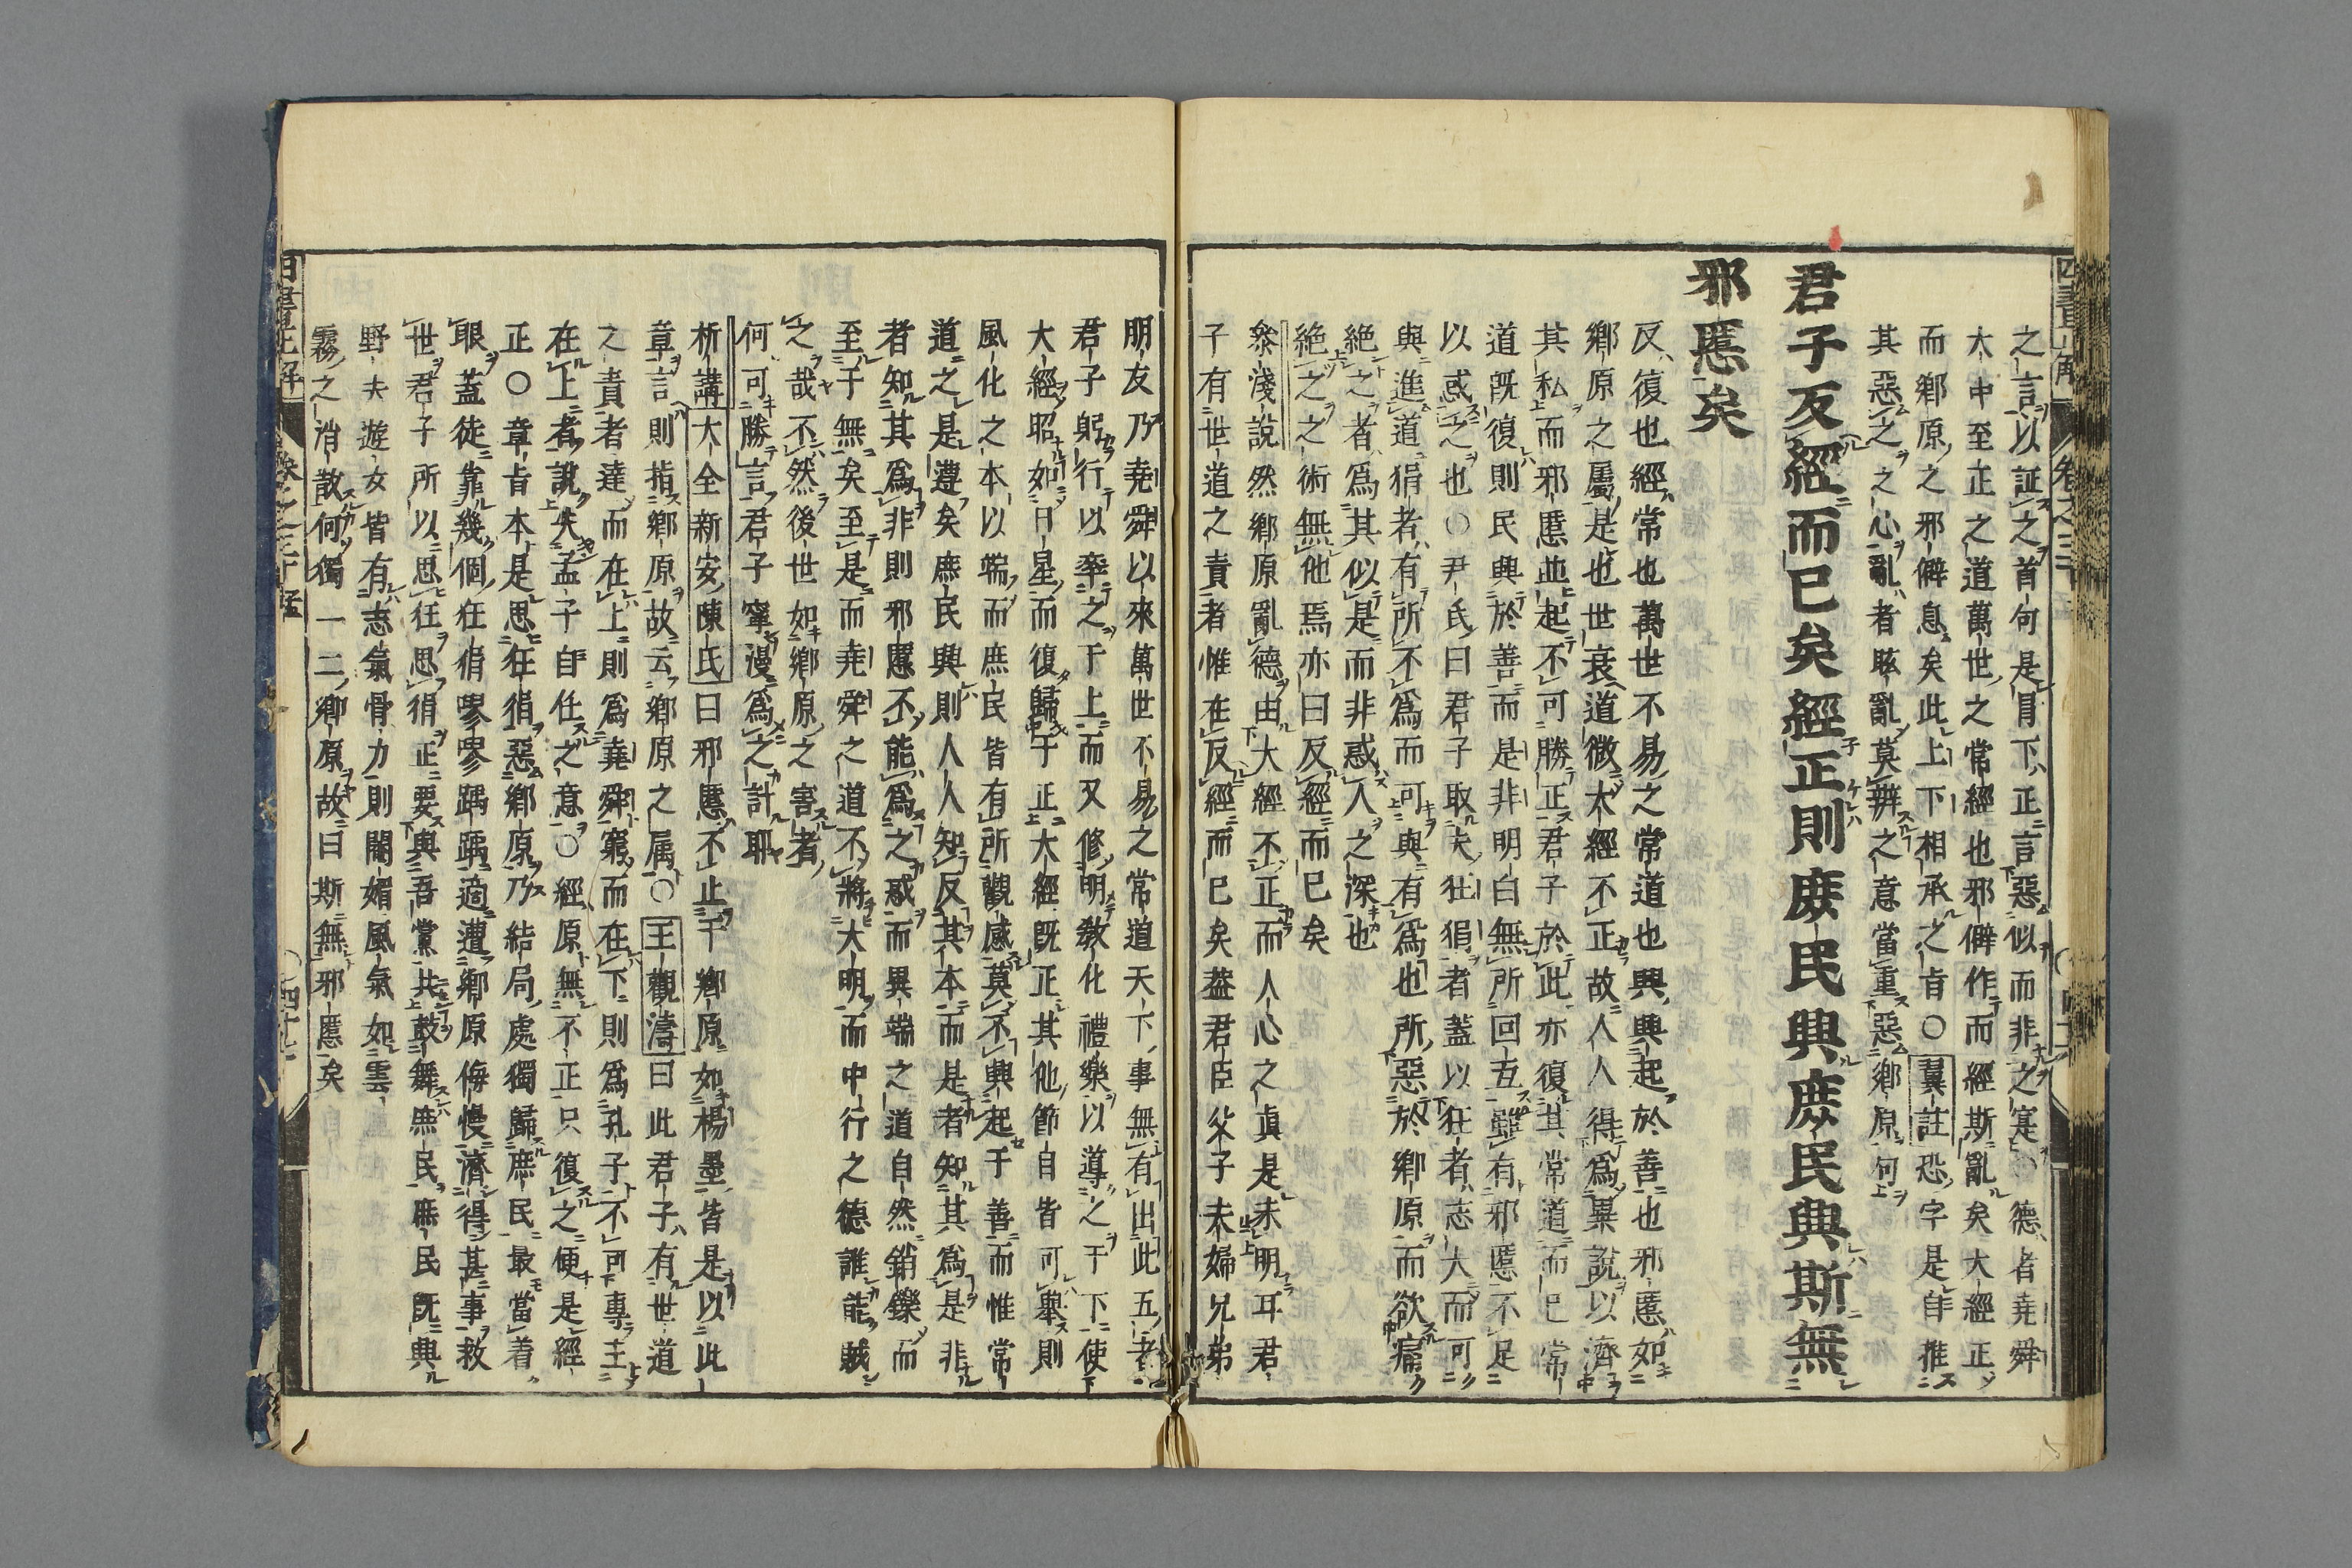 之言以証之首句是冒下正言惡似而非之寔○德者堯舜
大中至正之道萬世之常經也邪僻作而經斯亂矣大經正
而鄉原之邪僻息矣此上下相承之旨○翼註恐字是自推
其惡之之心亂者眩亂莫辨之意當重惡鄉原何
君子反經而已矣經正則庶民興庶民興斯無
邪慝矣
反復也經常也萬世不易之常道也興興起於善也邪慝如
鄉原之屬是也世衰道微大經不正故人人得爲異說以濟
其私而邪慝並起不可勝正君子於此亦復其常道而已常
道既復則民興於善而是非明白無所回互雖有邪慝不足
以惑之也○尹氏曰君子取夫狂狷者蓋以狂者志大而可
與進道狷者有所不爲而可與有爲也所惡於鄉原而欲痛
絕之者爲其似是而非惑人之深也
絕之之術無他焉亦曰反經而已矣
叅淺說然鄉原亂德由大經不正而人心之眞是未明耳君
子有世道之責者惟在反經而已矣蓋君臣父子夫婦兄弟
朋友乃堯舜以來萬世不易之常道天下事無有出此五者
君子躬行以率之于上而又修明敎化禮樂以導之于下使
大經昭如日星而復歸于正大經既正其他節自皆可舉則
風化之本以端而庶民皆有所觀感莫不興起于善而惟常
道之是遵矣庶民興則人人知反其本而是者知其爲是非
者知其爲非則邪慝不能爲之惑而異端之道自然銷鑠而
至于無矣至是而堯舜之道不將大明而中行之德誰能賊
之哉不然後世如鄉原之害者
何可勝言君子寧漫爲之計耶
析講大全新安陳氏曰邪慝不止于鄉原如楊墨皆是以此
章言則指鄉原故云鄉原之屬○王觀濤曰此君子有世道
之責者達而在上則爲堯舜窮而在下則爲孔子不可專主
在上者說失孟子自任之意○經原無不正只復之便是經
正○章旨本是思狂狷惡鄉原乃結局處獨歸庶民最當着
眼蓋徒靠幾個狂狷嘐嘐踽踽適遭鄉原侮慢濟得甚事救
世君子所以思狂思狷正要與吾黨共鼓舞庶民庶民既興
野夫遊女皆有志氣骨力則閹媚風氣如雲
霧之消散何獨一二鄉原故曰斯無邪慝矣